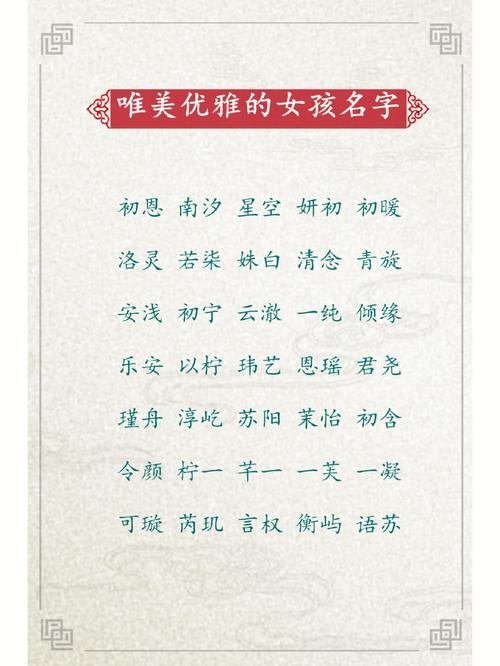 唯美优雅的女孩名字
初恩 南汐 星空 妍初 初暖
洛灵 若柒 姝白 清念 青旋
安浅 初宁 云澈 一纯 倾缘
乐安 以柠 玮艺 恩瑶 君尧
瑾舟 淳屹 苏阳 茉怡 初含
令颜 柠一 芊一 一芙 一凝
可璇 芮玑 言权 衡屿 语苏